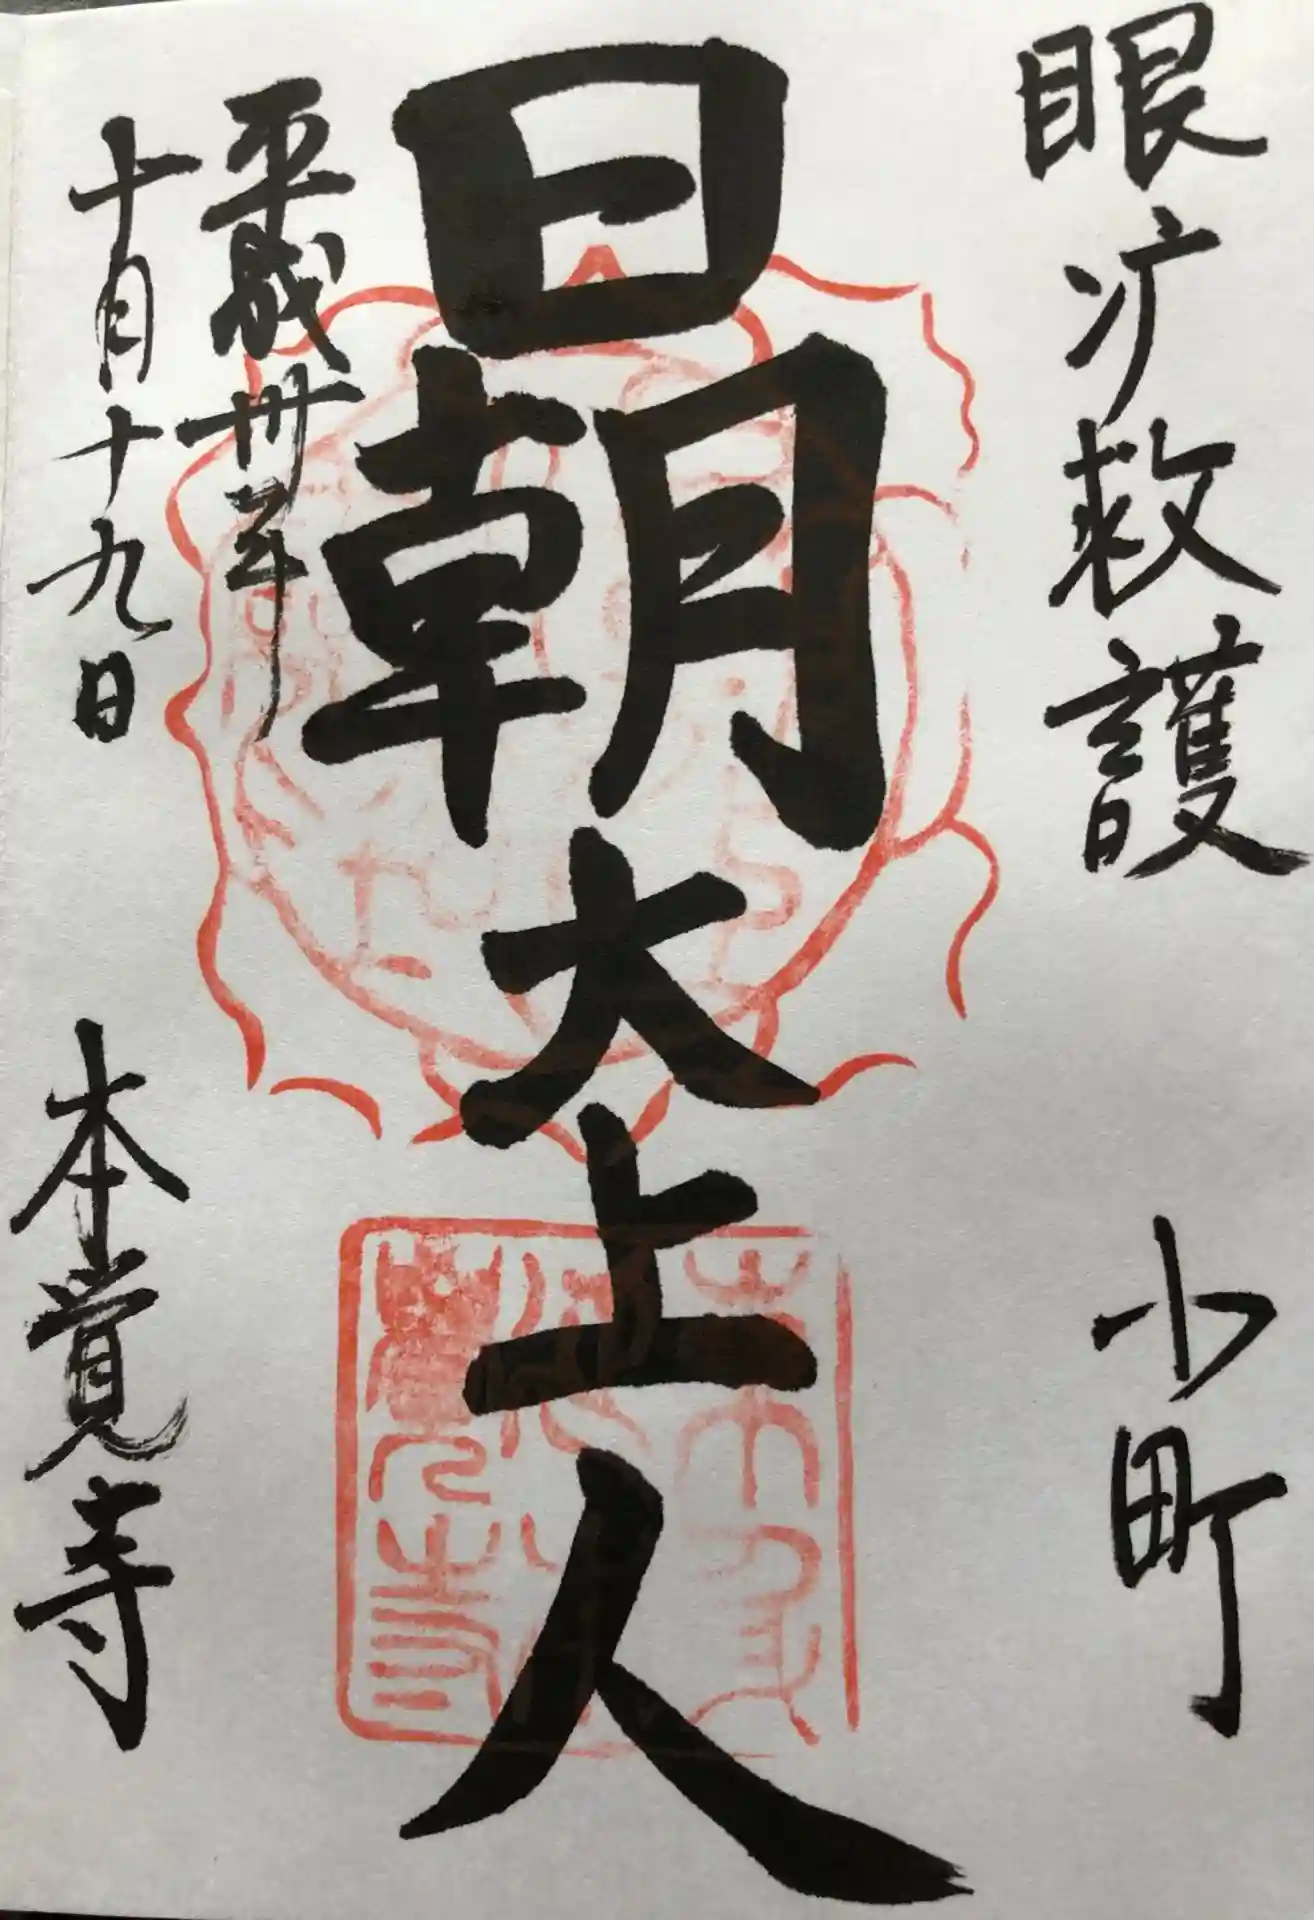 眼疒救護 小町
日朝大上人
平成卅年
十月十九日 本覚寺